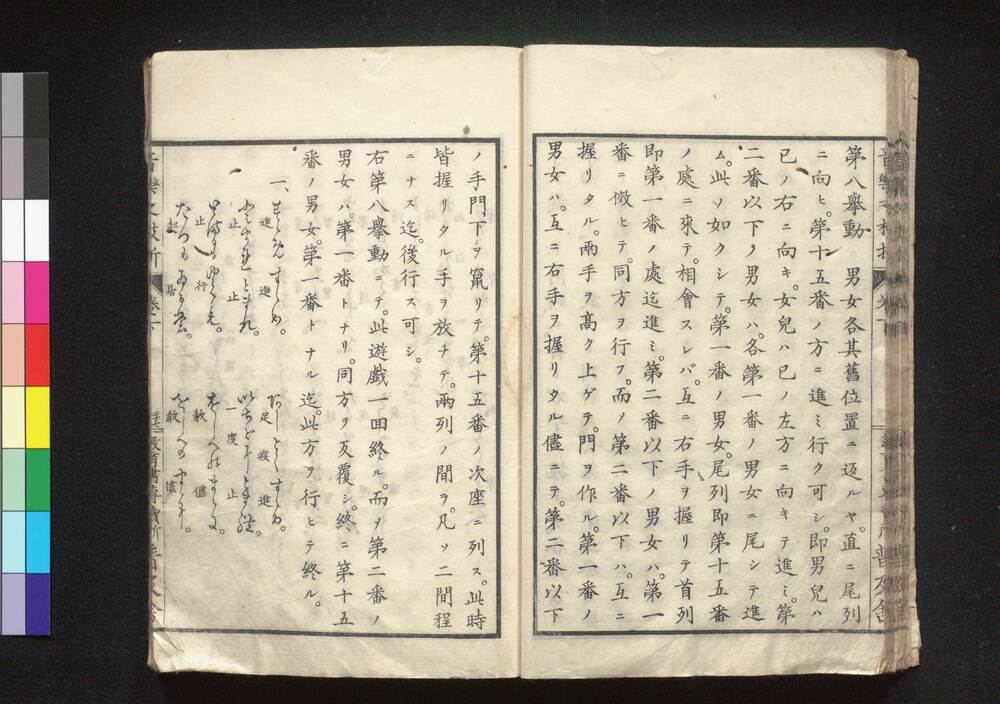 第八擧動　男女各其舊位置ニ返ルヤ。直ニ尾列
ニ向ヒ。第十五番ノ方ニ進ミ行ク可シ。即男兒ハ
已ノ右ニ向キ。女兒ハ已ノ左方ニ向キテ進ミ。第
二番以下ノ男女ハ。各第一番ノ男女ニ尾シテ進
ム。此ノ如クシテ。第一番ノ男女。尾列即第十五番
ノ處ニ來テ。相會スレバ。互ニ右手ヲ握リテ首列
即第一番ノ處迄進ミ。第二番以下ノ男女ハ。第一
番ニ傚ヒテ。同方ヲ行フ。而ノ第二番以下ハ。互ニ
握リタル。兩手ヲ高ク上ゲテ。門ヲ作ル。第一番ノ
男女ハ。互ニ右手ヲ握リタル儘ニテ。第二番以下
ノ手門下ヲ竄リテ。第十五番ノ次座ニ列ス。此時
皆握リタル手ヲ放チテ。兩列ノ間ヲ。凡ソ二間程
ニナス迄。後行ス可シ。
右第八擧動ニテ。此遊戯一囬終ル。而ノ第二番ノ
男女ハ。第一番トナリ。同方ヲ反覆シ。終ニ第十五
番ノ男女。第一番トナル迄。此方ヲ行ヒテ終ル。
一、すゝめすゝめ。　あしとくすゝめ。
進　進　足疾進
とまれとまれ。　いちどにとまれ。
止　止　一度止
止　行　教　儘
起　居　教　儘